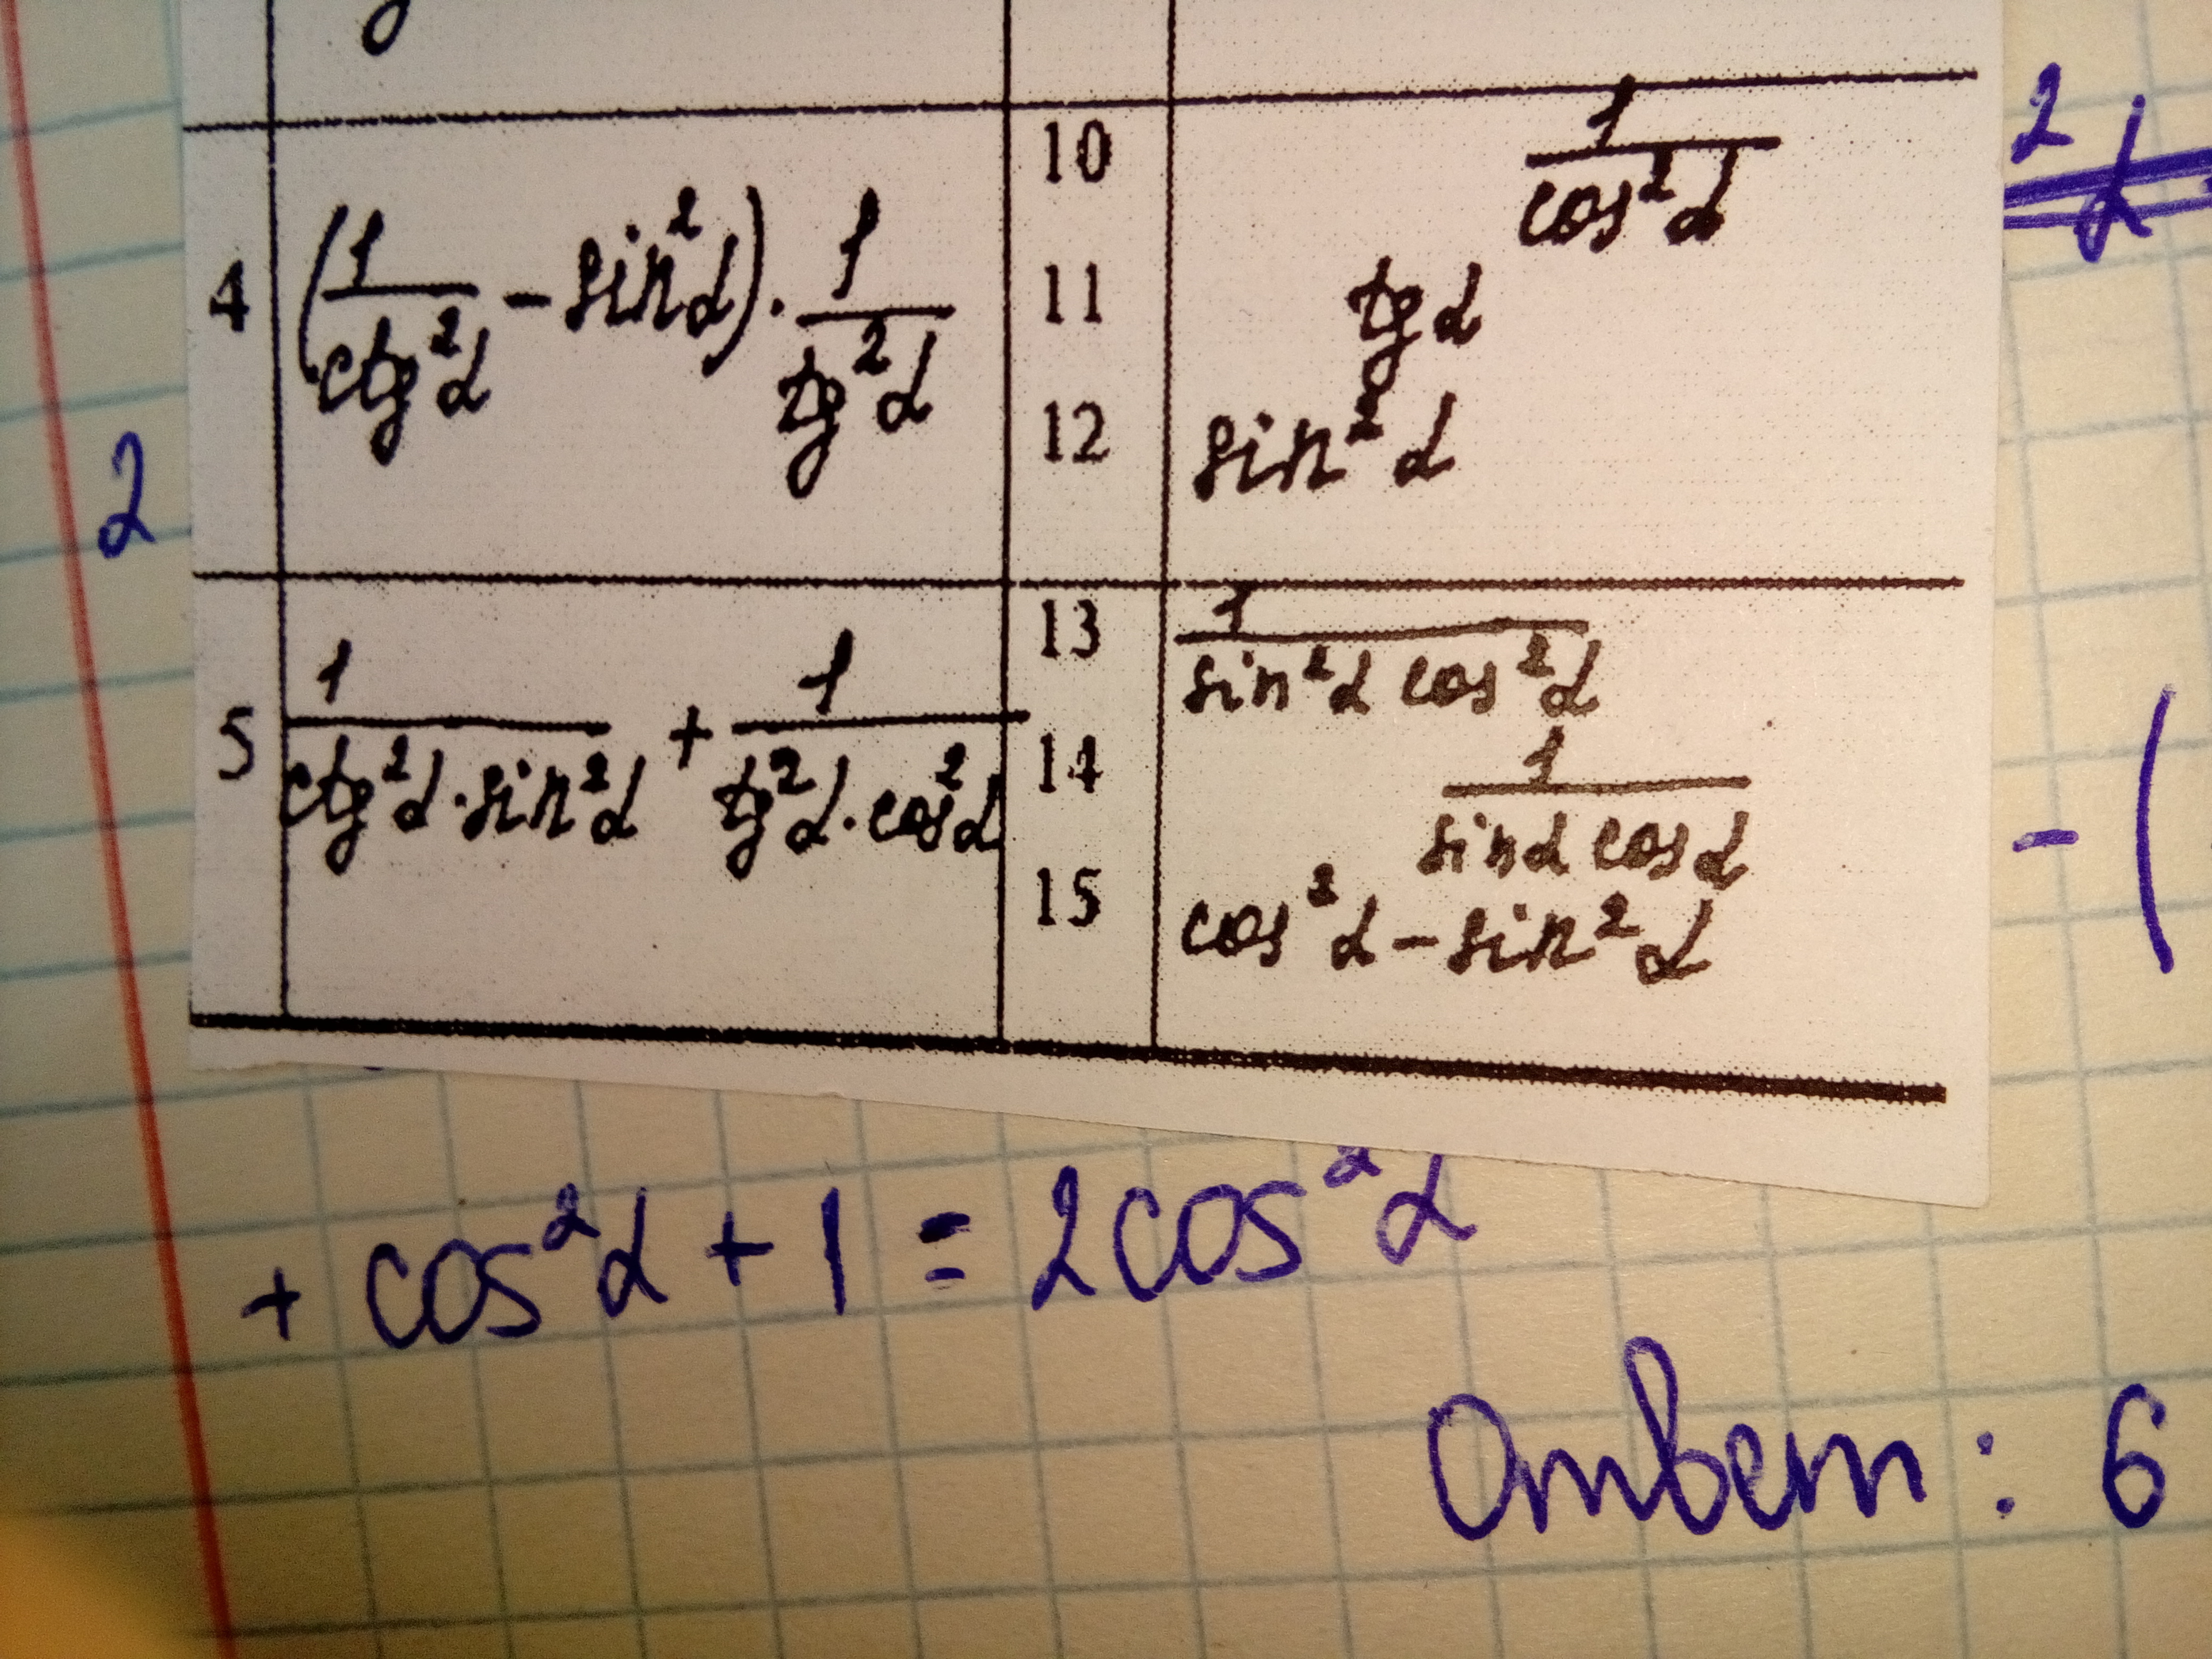 4
(1/ctg²α - sin²α) · 1/tg²α
10
1/cos²α
11
tg α
12
sin²α
5
1/(ctg²α · sin²α) + 1/(tg²α · cos²α)
13
1/(sin²α cos²α)
14
1/(sinα cosα)
15
cos²α - sin²α
2
²α
- (
+ cos²α + 1 = 2cos²α
Ответ: 6